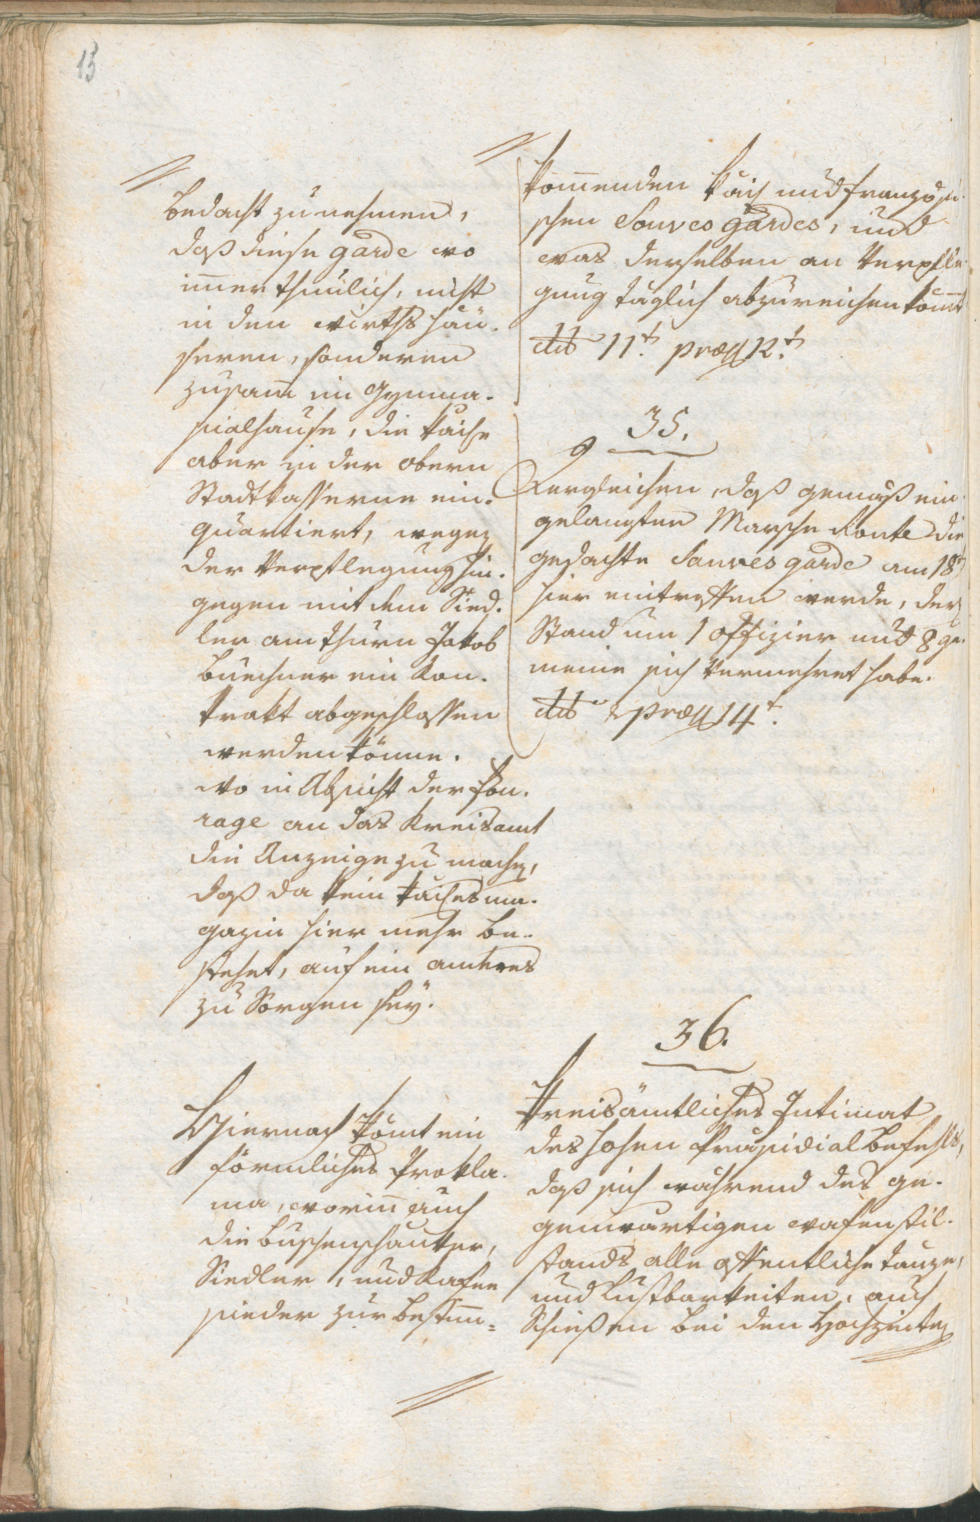 13
bedacht zu nehmen,
daß diese garde wo
im̄er thunlich, nicht
in den wirthshäu-
sern, sonderen
zusam̄ im Gymna-
sialhause, die kais.
aber in der obern
Stadtkasserne ein-
quartiert, wegen
der Verpflegung hin-
gegen mit dem Sied-
ler am thurn Jakob
Buechner ein Kon-
trakt abgeschlossen
werden könne.
wo in Absicht der fou-
rage an das Kreisamt
die Anzeige zu machen,
daß da kein kais. ma-
gazin hier mehr be-
stehet, auf ein anderes
zu Sorgen seÿ.
Hiernach kömt ein
förmliches Prokla-
ma, worin̄ auch
die buschenschanker,
Siedler, und Kafee
sieder zur bestim̄-
kom̄enden kais und französi-
schen Sauves gardes, und
was derselben an Verpfle-
gung täglich abzureichen kömt
dto 11t. præs 12t.
35.
Dergleichen, daß gemäß ein-
gelangter Marsche Route die
gedachte Sauves garde am 18t
hier eintreffen werde, der
Stand um 1 offizier mit 8 ge-
meine sich vermehret habe.
dto & præs 14t.
36.
Kreisämtliches Intimat
des hohen Präsidial befehls,
daß sich während des ge-
genwärtigen wafenstil-
stands alle offentliche tänze,
und Lustbarkeiten, auch
Schießen bei den Hochzeiten